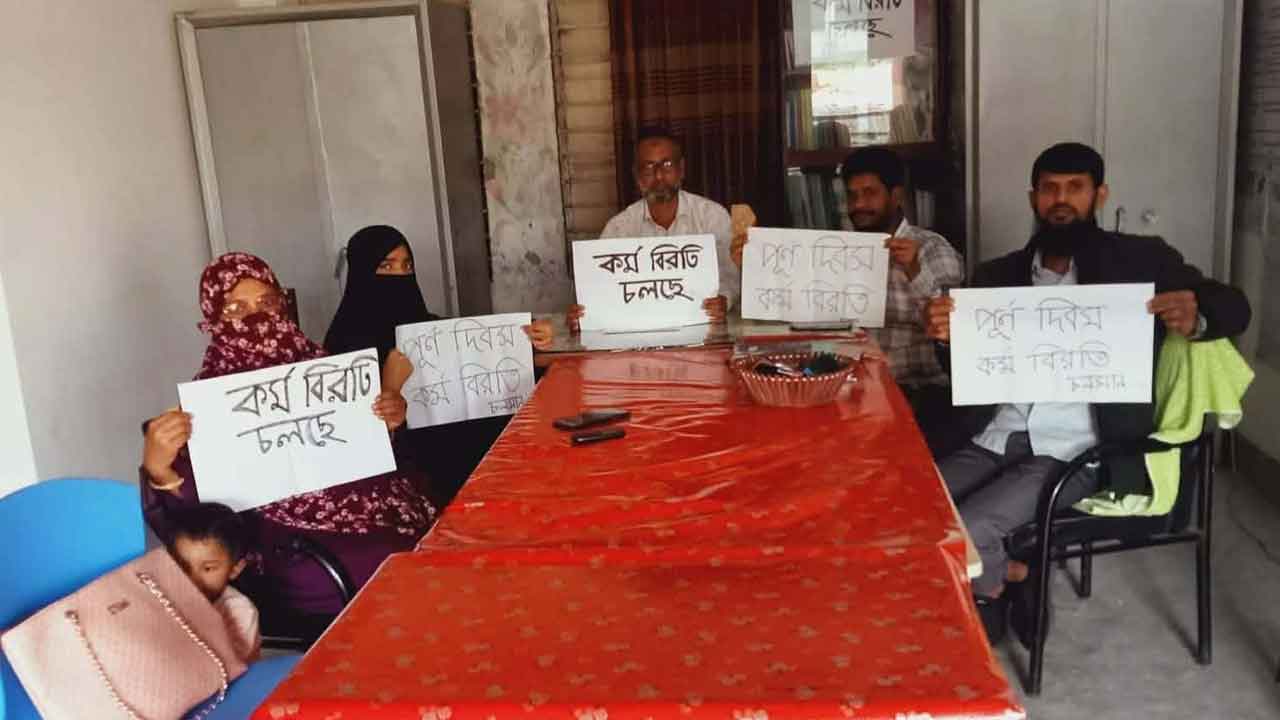 কর্ম বিরতি
চলছে
কর্ম বিরতি
চলছে
পূর্ন দিবস
কর্ম বিরতি
পূর্ন দিবস
কর্ম বিরতি
চলমান
পূর্ন দিবস
কর্ম বিরতি
চলমান
কর্ম বিরতি
চলছে